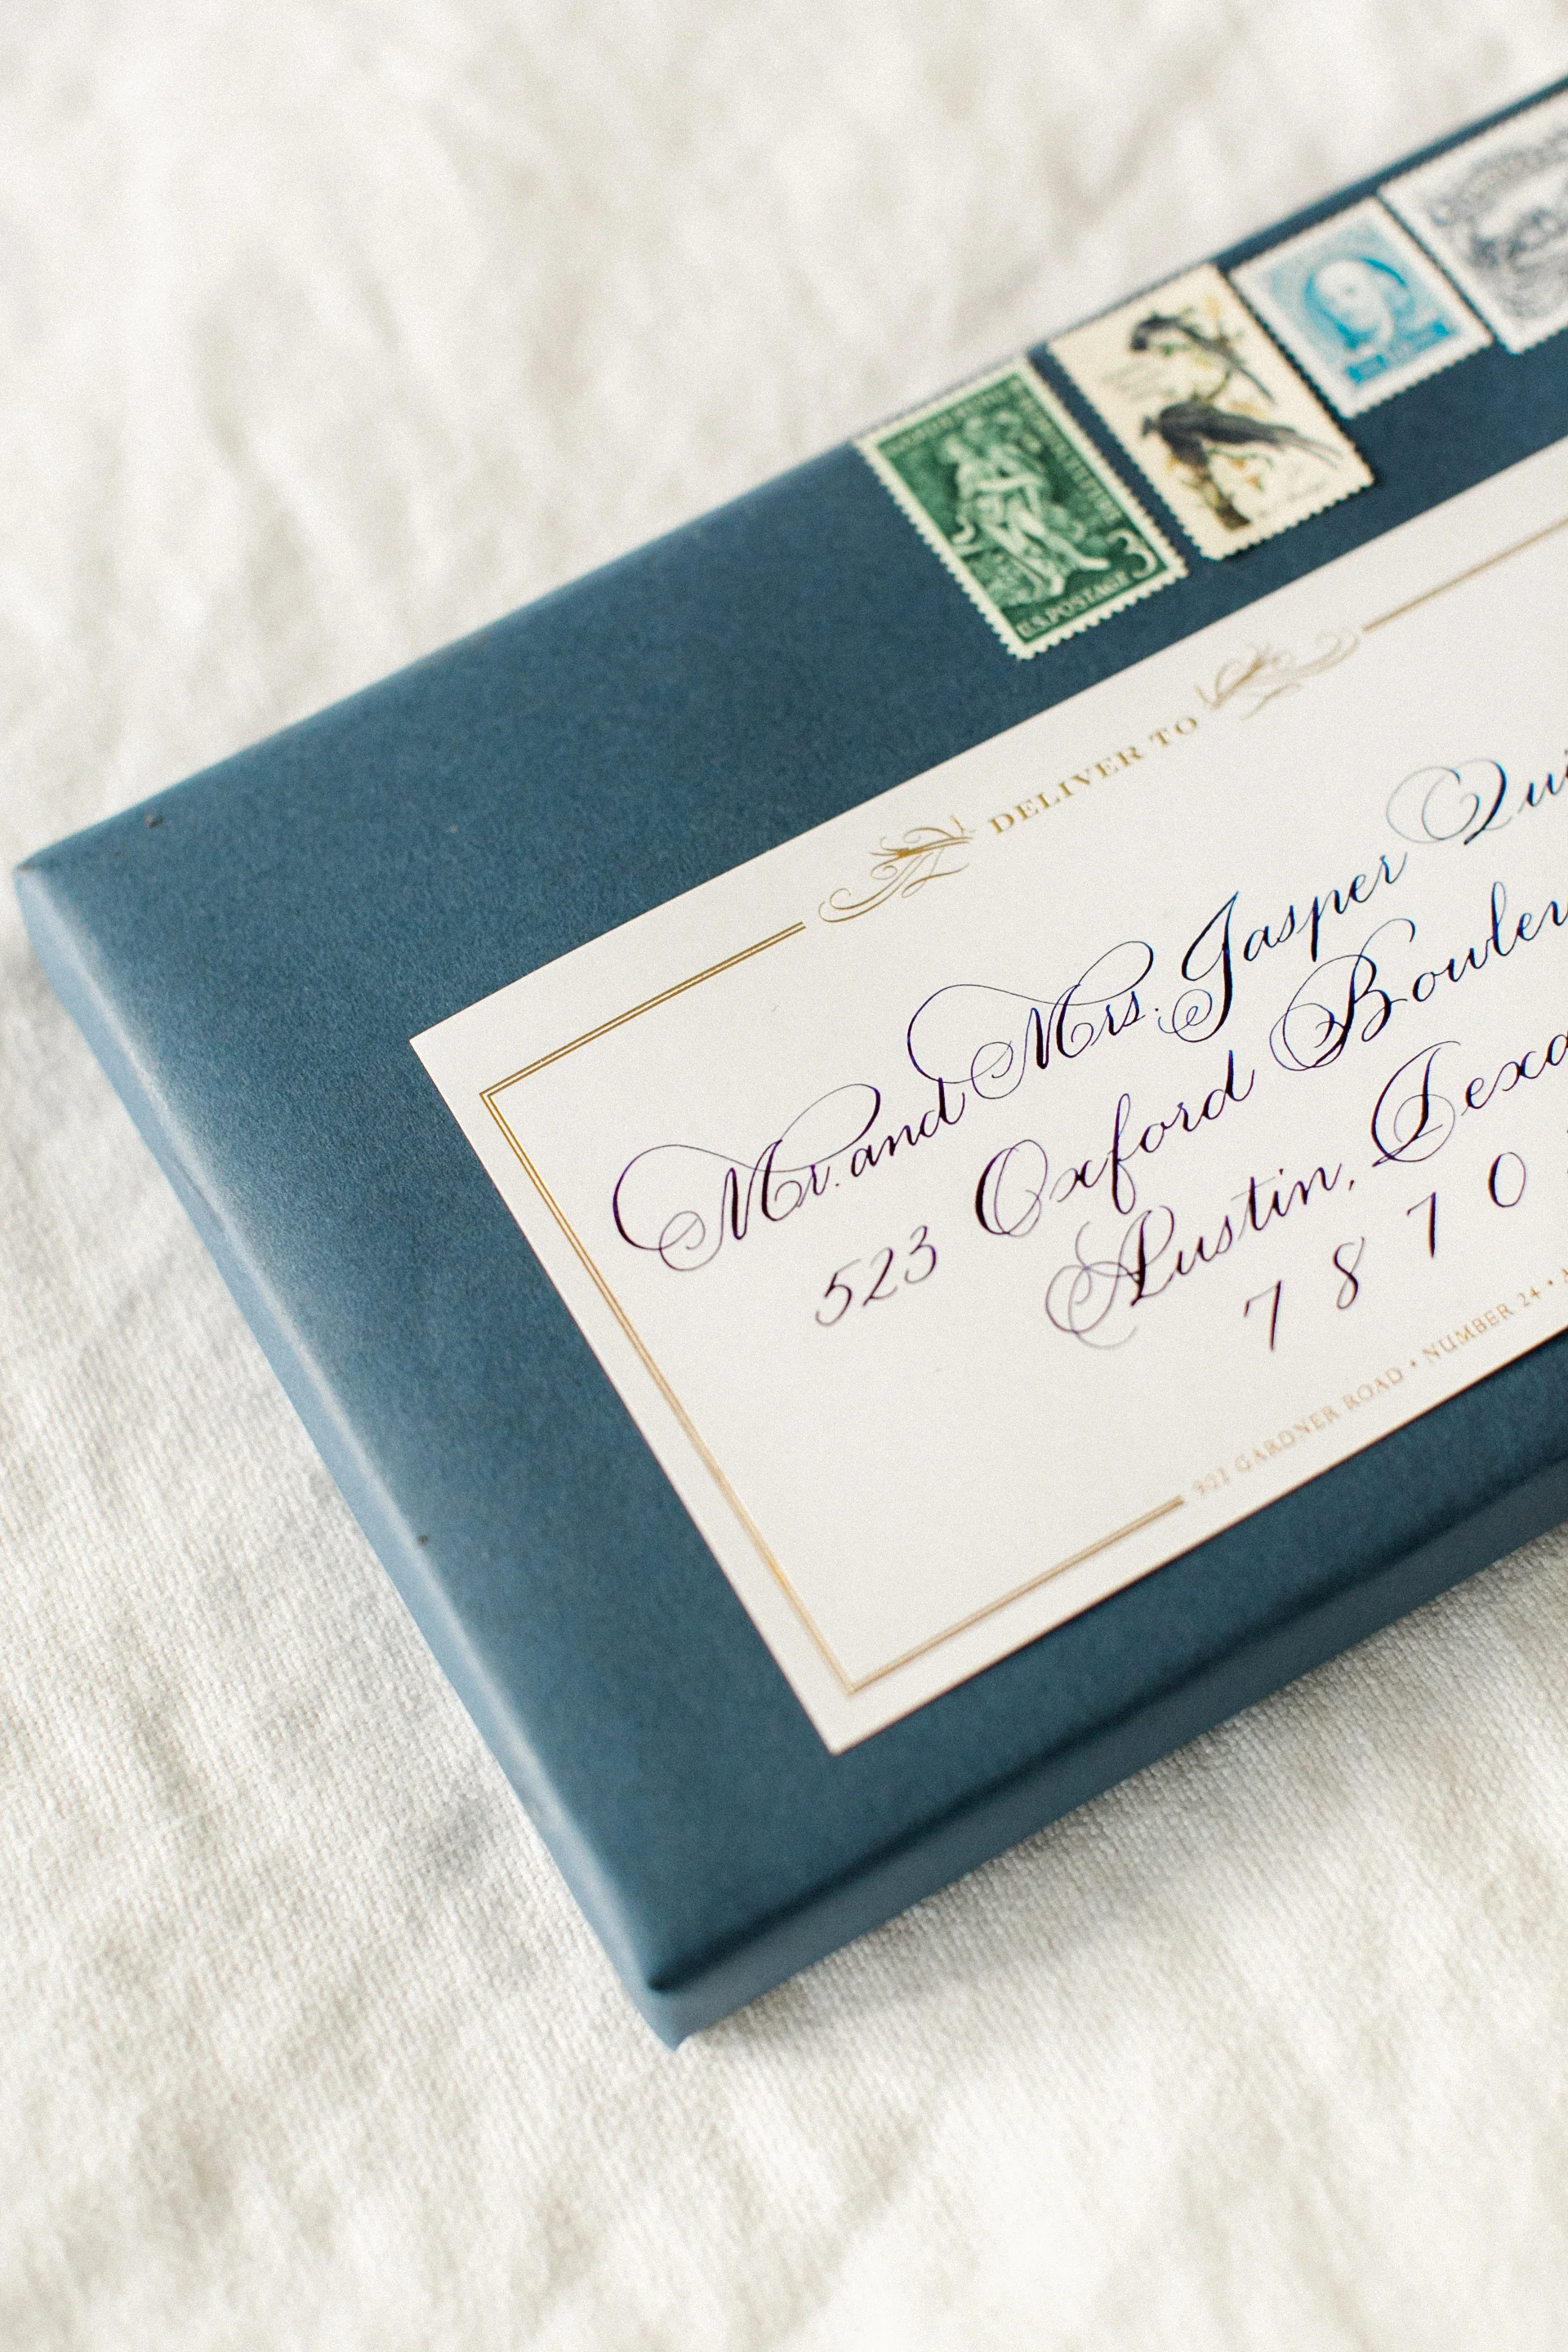 U.S. POSTAGE 3
DELIVER TO
Mr. and Mrs. Jasper Qui
523 Oxford Boulev
Austin, Texa
7 8 7 0
GARDNER ROAD • NUMBER 24 • A